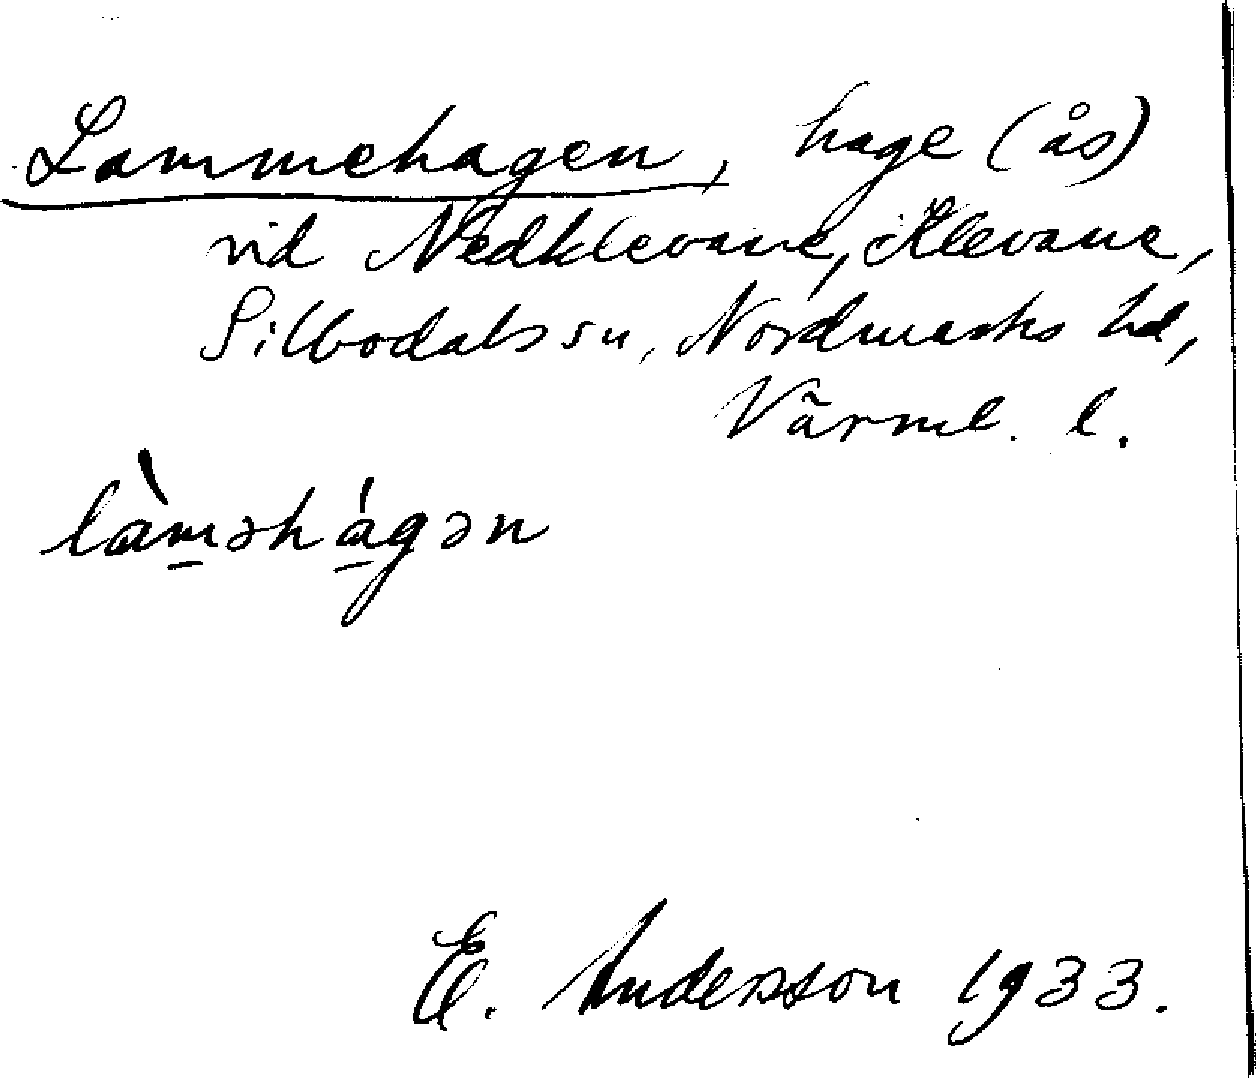 Lammehagen, hage (ås)
vid Nedklevane, Klevane,
Silbodals sn, Nordmarks hd,
Värml. l.
làm̱əhá̱gən
E. Andersson 1933.